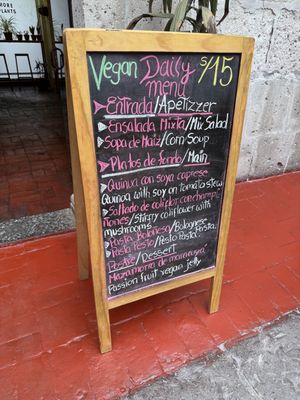 MORE
PLANTS
Vegan Daily S/15
menu
Entrada/Apetizzer
Ensalada Mixta/Mix Salad
Sopa de Maiz/Corn Soup
Platos de fondo/Main
Quinua con soya caprese
Quinoa with soy on tomato stew
Saltado de coliflor con champi-
ñones/Stirfry cauliflower with
mushrooms
Pasta Boloñesa/Bolognese
Pasta Pesto/Pesto Pasta
Postre/Dessert
Mazamorra de maracuyá
Passion fruit vegan jelly